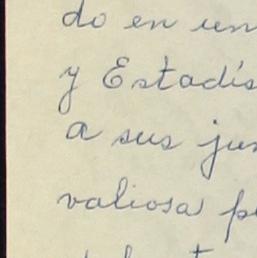 do en un
y Estadís
a sus ju
valiosa p